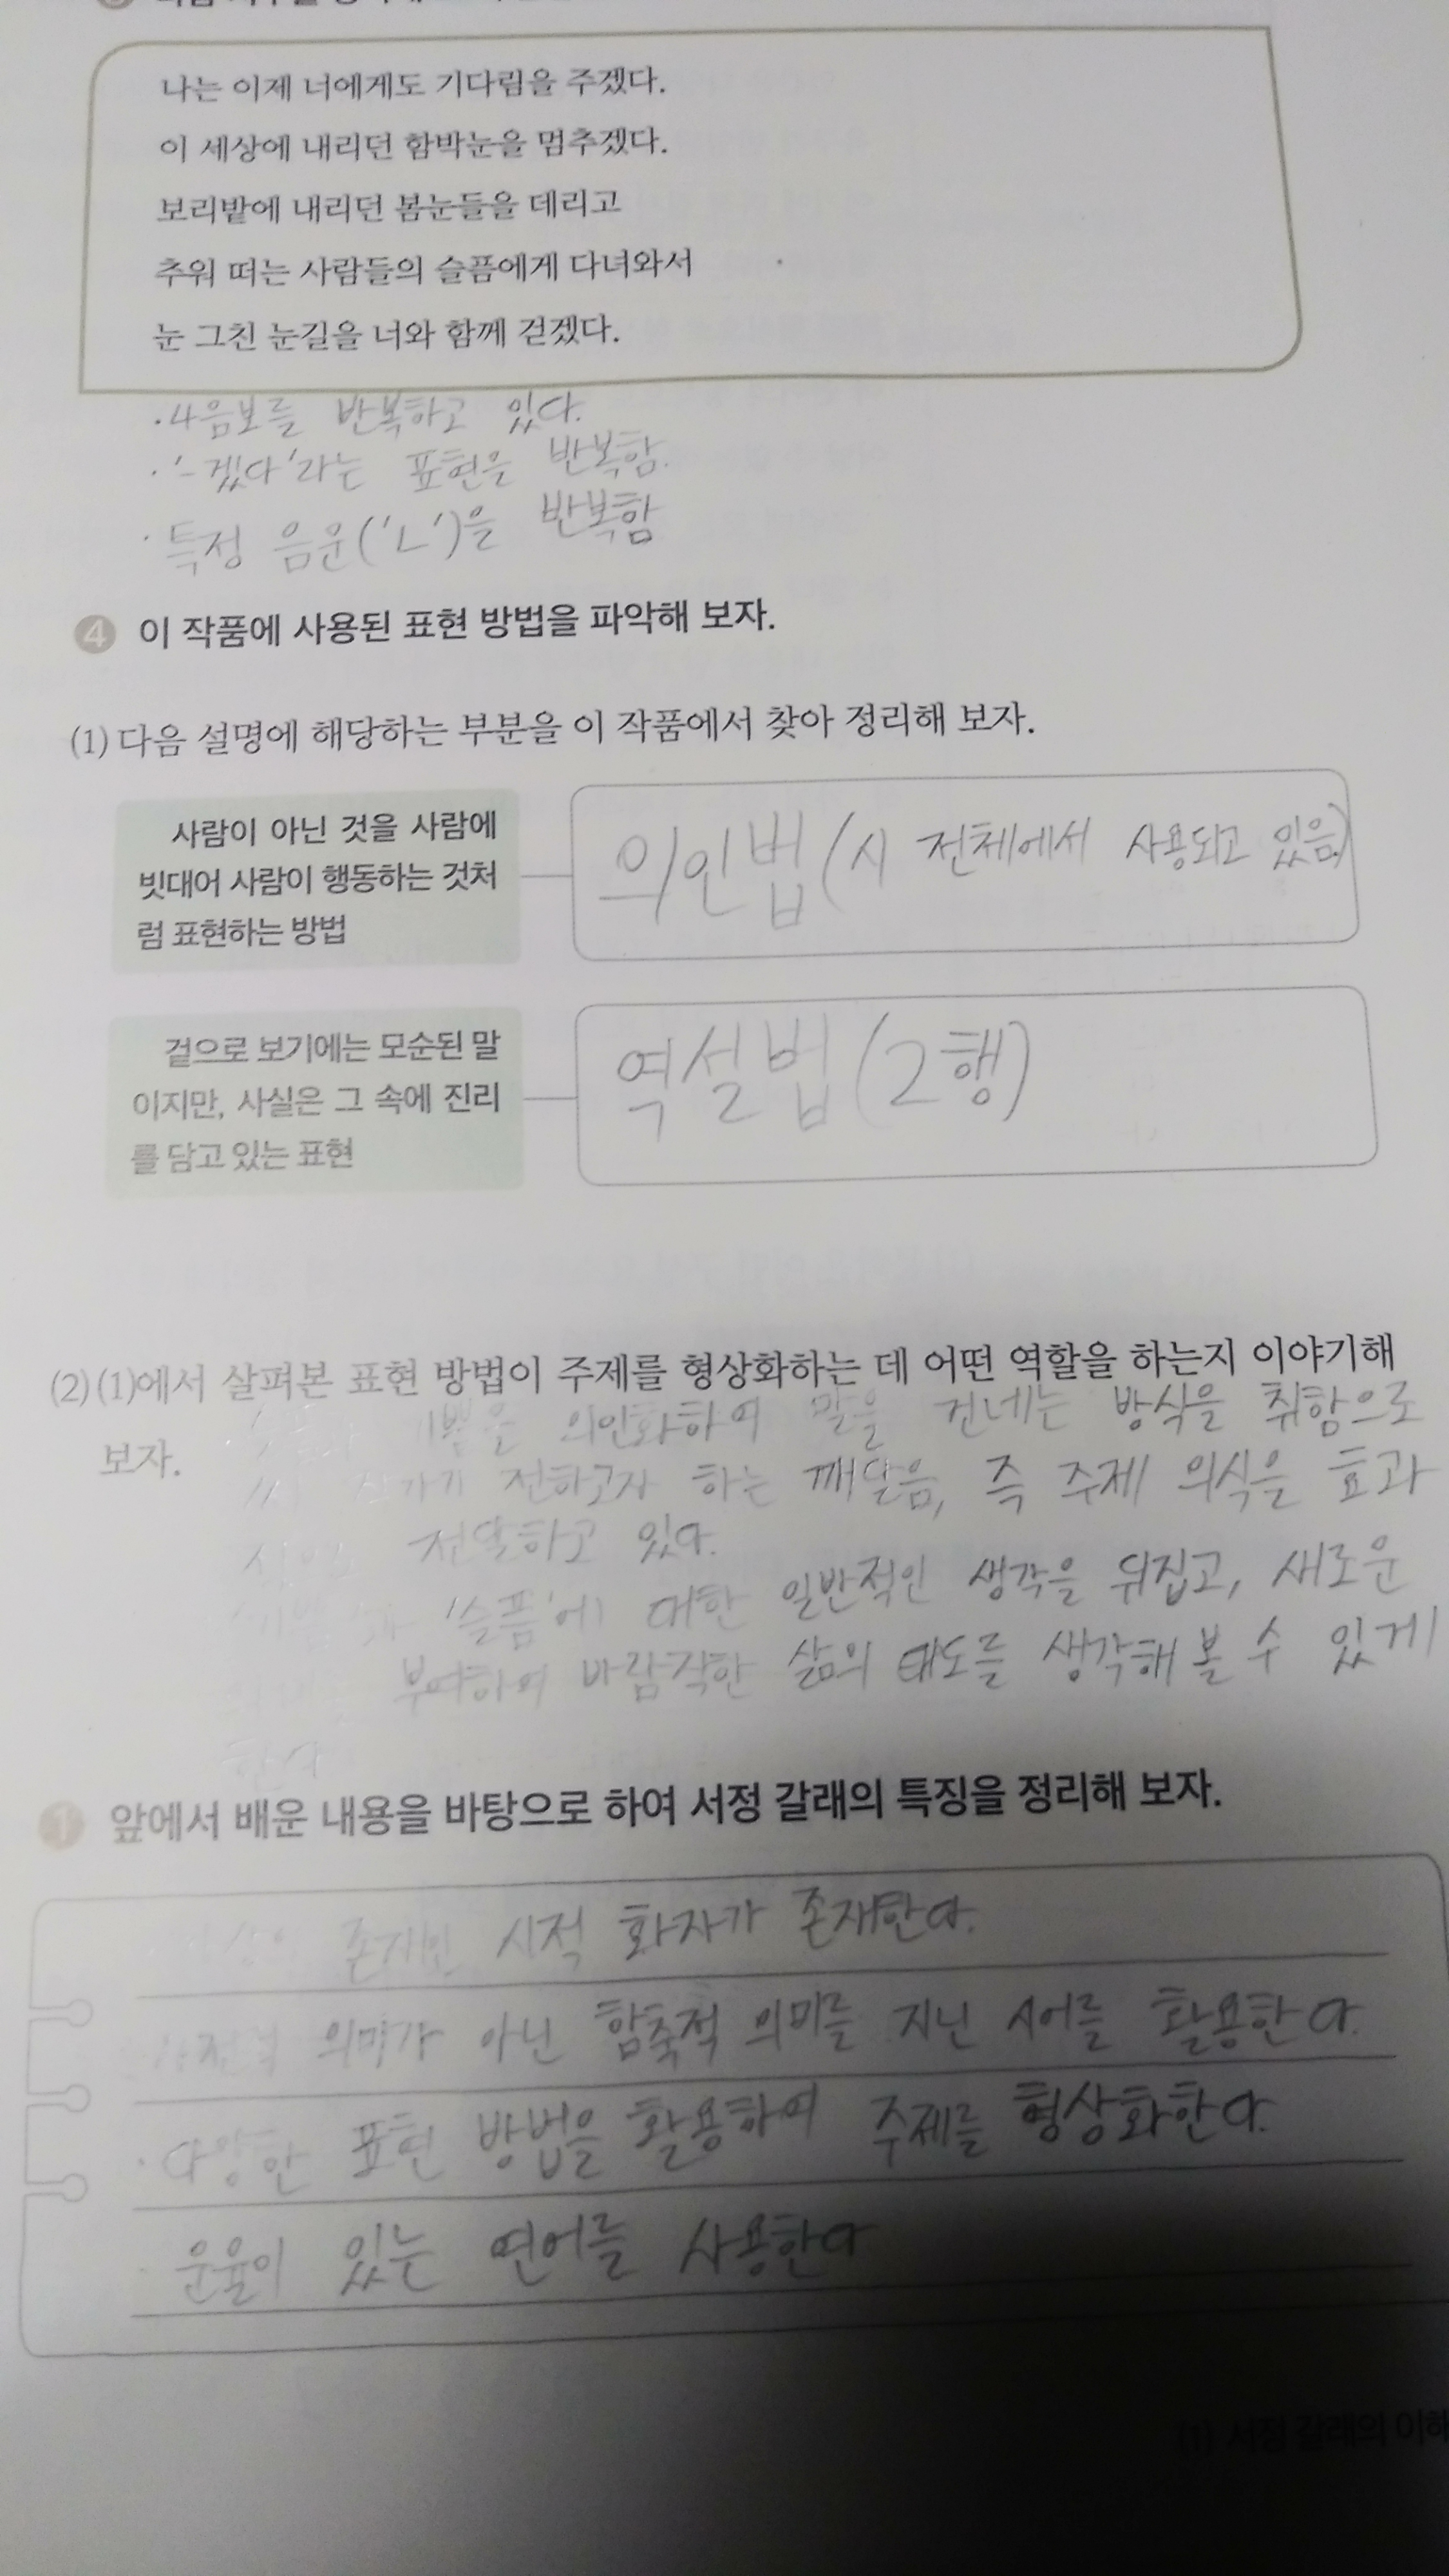 나는 이제 너에게도 기다림을 주겠다.
이 세상에 내리던 함박눈을 멈추겠다.
보리밭에 내리던 봄눈들을 데리고
추워 떠는 사람들의 슬픔에게 다녀와서
눈 그친 눈길을 너와 함께 걷겠다.
·4음보를 반복하고 있다.
·'-겠다'라는 표현을 반복함.
·특정 음운('ㄴ')을 반복함
4 이 작품에 사용된 표현 방법을 파악해 보자.
(1) 다음 설명에 해당하는 부분을 이 작품에서 찾아 정리해 보자.
사람이 아닌 것을 사람에
빗대어 사람이 행동하는 것처
럼 표현하는 방법
의인법(시 전체에서 사용되고 있음)
겉으로 보기에는 모순된 말
이지만, 사실은 그 속에 진리
를 담고 있는 표현
역설법(2행)
(2) (1)에서 살펴본 표현 방법이 주제를 형상화하는 데 어떤 역할을 하는지 이야기해
보자.
의인화하여 말을 건네는 방식을 취함으로
전하고자 하는 깨달음, 즉 주제 의식을 효과
전달하고 있다.
'슬픔'에 대한 일반적인 생각을 뒤집고, 새로운
부여하여 바람직한 삶의 태도를 생각해 볼 수 있게
한다
1 앞에서 배운 내용을 바탕으로 하여 서정 갈래의 특징을 정리해 보자.
존재인 시적 화자가 존재한다.
의미가 아닌 함축적 의미를 지닌 시어를 활용한다.
·다양한 표현 방법을 활용하여 주제를 형상화한다.
·운율이 있는 언어를 사용한다
(1) 서정 갈래의 이해